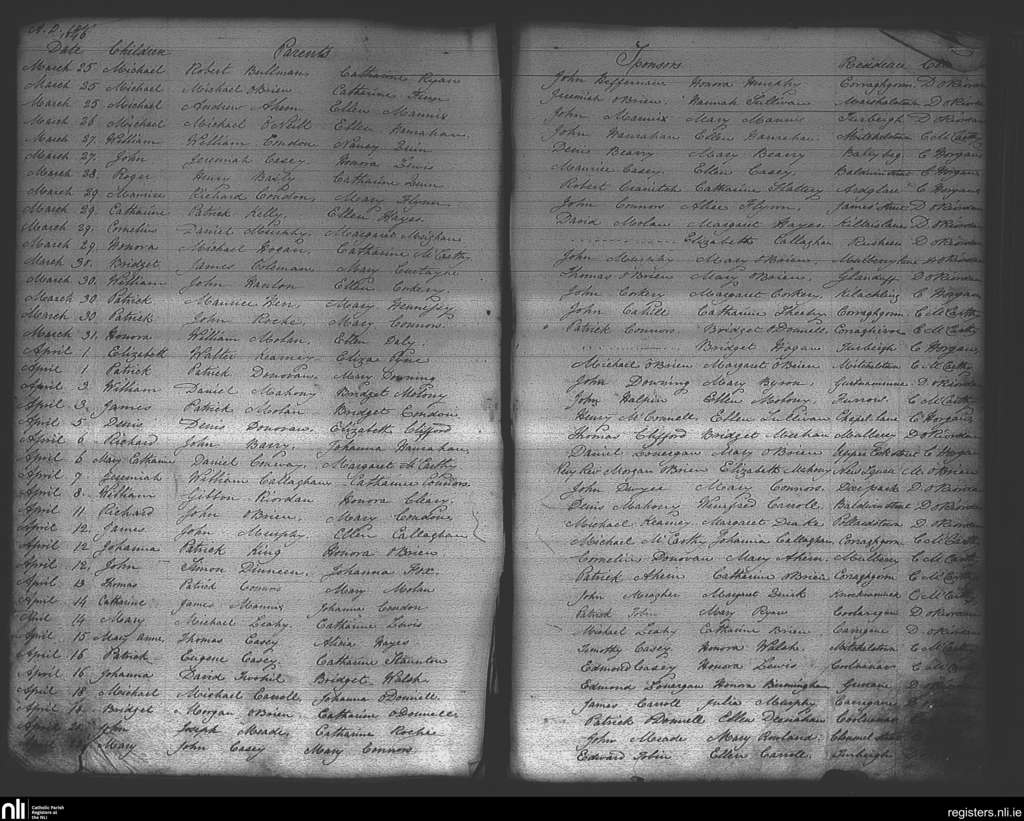 A.D. 1846
Date Children Parents
March 25 Michael Robert Bullman Catharine Ryan
March 25 Michael Michael O'Brien Catharine
March 25 Michael Andrew Ahern Ellen Mannix
March 26 Michael Michael O'Neill Ellen Hanrahan
March 27. William William Condon Nancy Quin
March 27. John Jeremiah Casey Honora Lewis
March 28. Roger Henry Catharine Quin
March 29 Maurice Richard Condon Mary Flynn
March 29. Catharine Patrick Kelly Ellen Hayes
March 29. Cornelius Daniel Murphy Margaret Meighan
March 29. Honora Michael Hogan Catharine McCarthy
March 30. Bridget James Coleman Mary Curtayne
March 30. William John Hanlon Ellen Corkery
March 30 Patrick Maurice Mary Hennessy
March 30 Patrick John Roche Mary Connors
March 31. Honora William Molan Ellen Daly
April 1 Elizabeth Walter Kearney Eliza
April 1 Patrick Patrick Donovan Mary Downing
April 3 William Daniel Mahony Bridget Molony
April 3. James Patrick Molan Bridget Condon
April 5 Denis Denis Donovan Elizabeth Clifford
April 6 Richard John Barry Johanna Hanrahan
April 6 Mary Catharine Daniel Conway Margaret McCarthy
April 7 Jeremiah William Callaghan Catharine Connors
April 8. William Gibbon Riordan Honora Cleary
April 11 Richard John O'Brien Mary Condon
April 12. James John Murphy Ellen Callaghan
April 12 Johanna Patrick King Honora O'Brien
April 12. John Simon Dinneen Johanna Fox
April 13 Thomas Patrick Connors Mary Molan
April 14 Catharine James Mannix Johanna Condon
April 14 Mary Michael Leahy Catharine Lewis
April 15 Mary Anne Thomas Casey Alicia Hayes
April 15 Patrick Eugene Casey Catharine Staunton
April 16 Johanna David Bridget Walsh
April 18 Michael Michael Carroll Johanna O'Donnell
April Bridget Morgan O'Brien Catharine O'Donnell
April 20 John Joseph Meade Catharine Roche
April Mary John Casey Mary Connors
Sponsors Residence
John Heffernan Honora Murphy Corraghgorm D O'Riordan
Jeremiah O'Brien Hannah Sullivan Marshalstown D O'Riordan
John Mannix Mary Mannix Furbeigh D O'Riordan
John Hanrahan Ellen Hanrahan Marshalstown C McCarthy
Denis Bearry Mary Bearry Ballybeg C Horgan
Maurice Casey Ellen Casey Baldwin street C Horgan
Robert Catharine Slattery Ardglare C Horgan
John Connors Alice Flynn James Street D O'Riordan
David Molan Margaret Hayes D O'Riordan
Elizabeth Callaghan Rusheen D O'Riordan
John Murphy Mary O'Brien Mulberry lane D O'Riordan
Thomas O'Brien Mary O'Brien Glanduff D O'Riordan
John Corkery Margaret Corkery C Horgan
John Cahill Catharine Sheehy Corraghgorm C McCarthy
Patrick Connors Bridget O'Donnell C McCarthy
Bridget Hogan Furbeigh C Horgan
Michael O'Brien Margaret O'Brien Mitchelstown C McCarthy
John Downing Mary Byron D O'Riordan
John Ellen Molony Furrow C McCarthy
Henry McConnell Ellen Sullivan Chapel lane C Horgan
Thomas Clifford Bridget Meehan Mullery D O'Riordan
Daniel Lonergan Mary O'Brien Upper Cork street C Horgan
Very Rev Morgan O'Brien Elizabeth Mahony New Square M O'Brien
John Dwyer Mary Connors Deerpark D O'Riordan
Denis Mahony Winefred Carroll Baldwin street D O'Riordan
Michael Kearney Margaret Drake D O'Riordan
Michael McCarthy Johanna Callaghan Corraghgorm C McCarthy
Cornelius Donovan Mary Ahern Mullery C McCarthy
Patrick Ahern Catharine O'Brien Corraghgorm C McCarthy
John Meagher Margaret Quirk C McCarthy
Patrick John Mary Ryan Coolaregan D O'Riordan
Michael Leahy Catharine Brien Carrigane D O'Riordan
Timothy Casey Honora Walsh Mitchelstown C McCarthy
Edmond Casey Honora Lewis
Edmond Lonergan Honora Birmingham
James Carroll Julia Murphy Carrigane
Patrick O'Donnell Ellen Deenahan
John Meade Mary Rowland Clonmel Street
Edward Tobin Ellen Carroll Furbeigh
nli Catholic Parish Registers at the NLI
registers.nli.ie